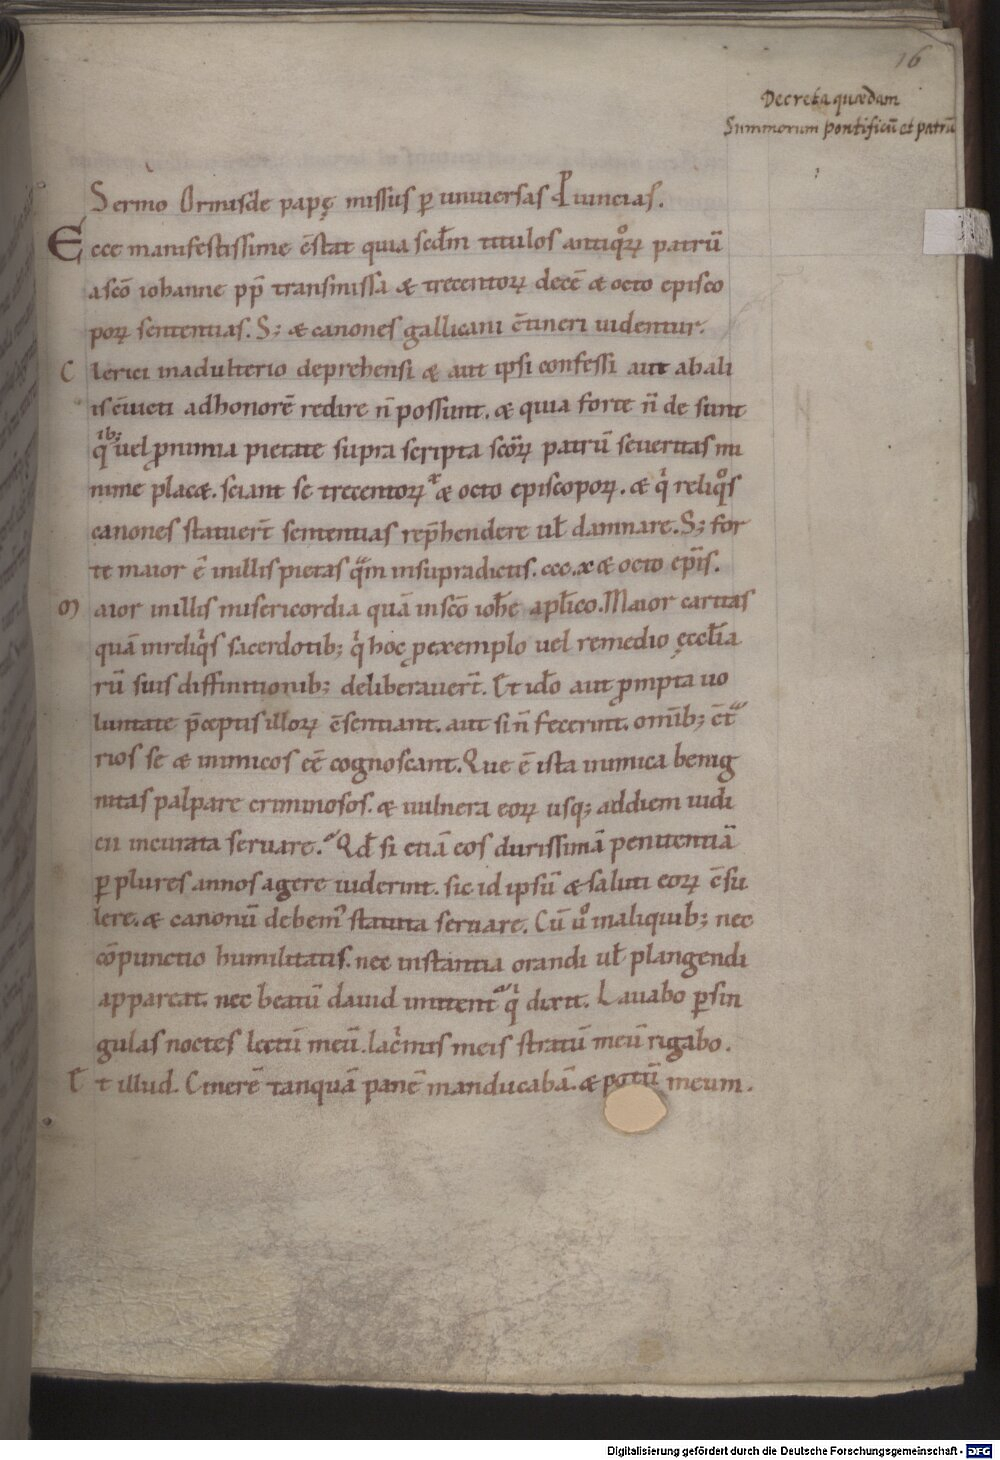 16
Decreta quædam
Summorum pontificū et patrū
Sermo Ormisde papę missus ꝑ uniuersas Puincias.
Ecce manifestissime c̄stat quia scdm̄ titulos antiqͦꝝ patrū
a scō iohanne pp̄ transmissa & trecentoꝝ decē & octo episco
poꝝ sententias. S; & canones gallicani c̄tineri uidentur.
Clerici in adulterio deprehensi & aut ipsi confessi aut ab ali
is c̄uicti ad honorē redire n̄ possunt. & quia forte n̄ desunt
qͥb; uel ꝓ nimia pietate supra scripta scōꝝ patrū seueritas mi
nime plac&. sciant se trecentoꝝ x & octo episcopoꝝ. & qͥ reliqͦs
canones statuerт̄ sententias rep̄hendere ul̄ damnare. S; for
te maior ē in illis pietas qͣm in supradictis. ccc. x & octo ep̄is.
Maior in illis misericordia quā in scō ioh̄e apl̄ico. Maior caritas
quā in reliqͥs sacerdotib; qͥ hoc ꝓ exemplo uel remedio ęccl̄ia
rū suis diffinitionib; deliberauert̄. Et id̄o aut ꝓmpta uo
luntate p̄ceptis illoꝝ c̄sentiant. aut si n̄ fecerint. omīb; c̄tͣ
rios se & inimicos eē cognoscant. Que ē ista inimica benig
nitas palpare criminosos. & uulnera eoꝝ usq; ad diem iudi
cii incurata seruare. Qd̄ si etiā eos durissimā penitentiā
ꝑ plures annos agere uiderint. sic id ipsū & saluti eoꝝ c̄su
lere. & canonū debem᷒ statuta seruare. Cū uͦ in aliquib; nec
cōpunctio humilitatis. nec instantia orandi ul̄ plangendi
appareat. nec beatū dauid imitentᷣ qͥ dixit. Lauabo ꝑ sin
gulas noctes lectū meū. lacͥmis meis stratū meū rigabo.
Et illud. Cinerē tanquā panē manducabā. & potū meum.
Digitalisierung gefördert durch die Deutsche Forschungsgemeinschaft - DFG